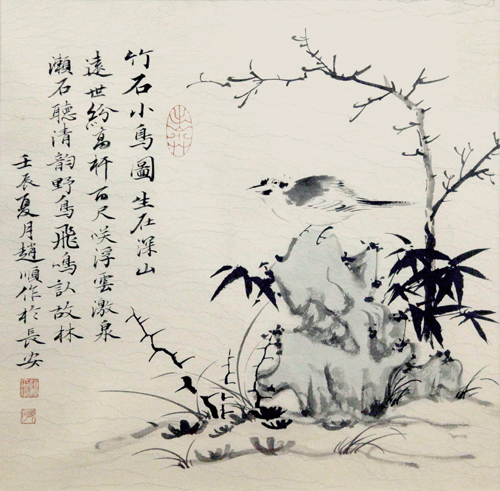 竹石小鳥圖生在深山
遠世紛高竿百尺咲浮雲激泉
瀨石聽清韵野鳥飛鳴認故林
壬辰夏月趙順作於長安